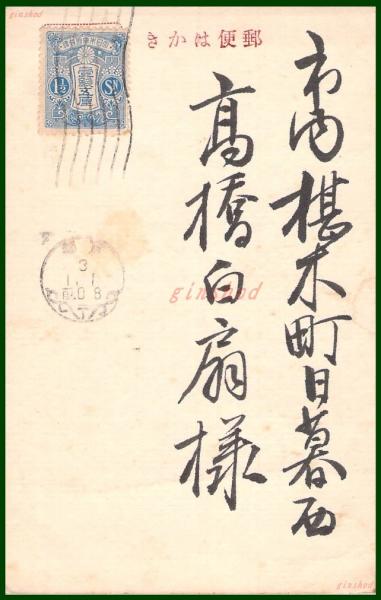 郵便はかき
市内椹木町日暮西
高橋白扇様
1½ Sn
3
1.1
前0-8
ginshod
ginshod
ginshod